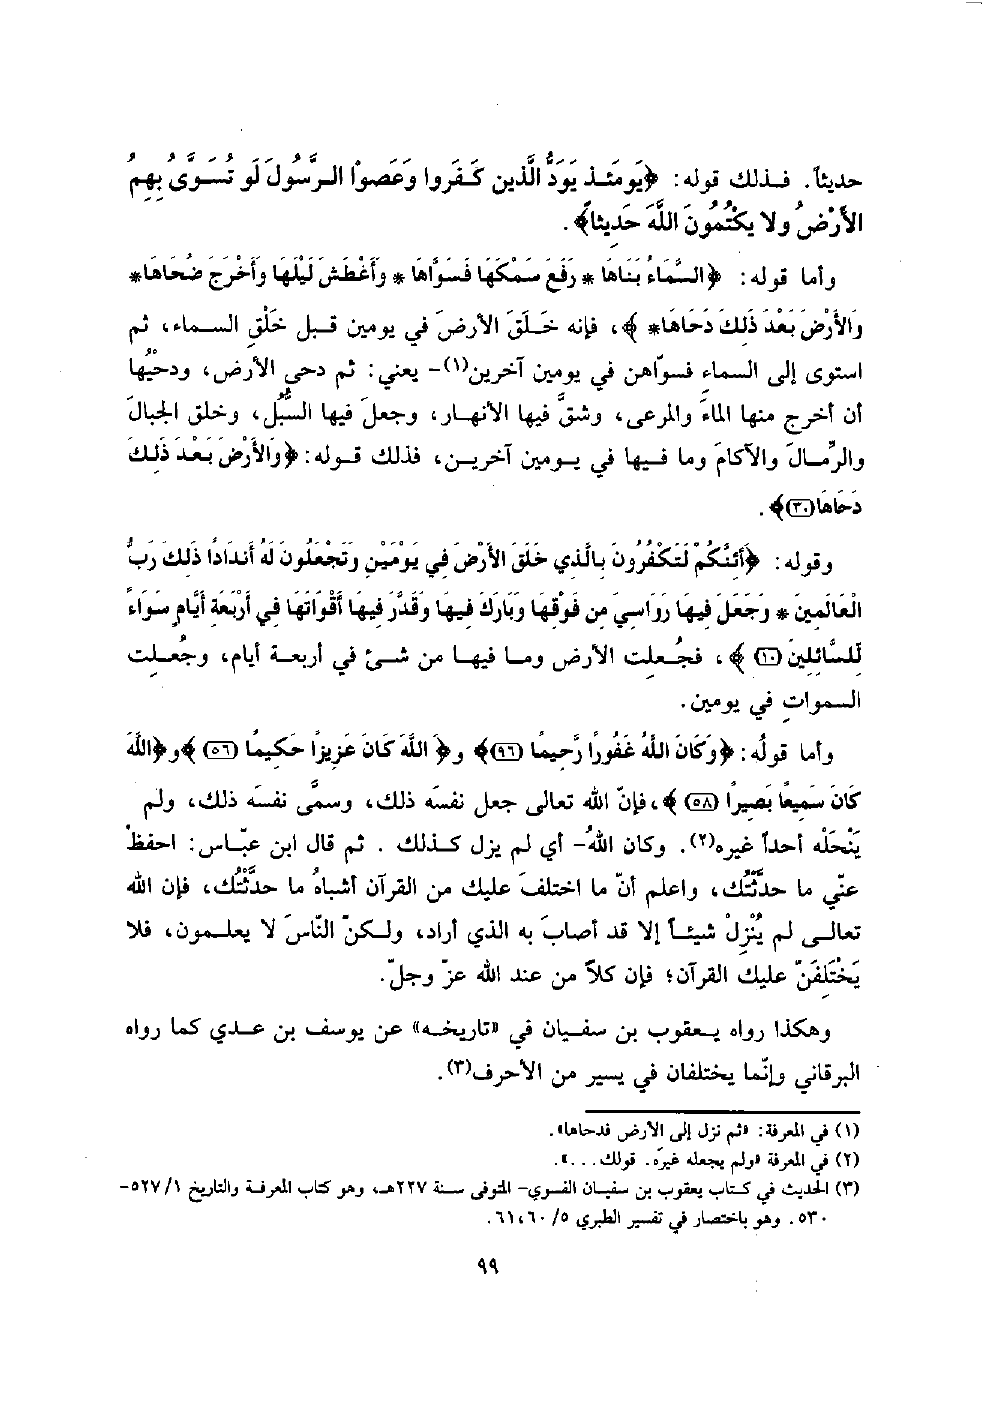 حديثاً. فـذلك قوله: ﴿يَومَئذ يَوَدُّ الَّذين كَفَروا وَعَصواْ الرَّسُولَ لَو تُسَوَّىُ بِهِمُ
الأَرْضُ ولا يكْتُمُونَ اللَّهَ حَديثاً﴾.
وأما قوله: ﴿السَّماءُ بَنَاهَا * رَفَعَ سَمْكَهَا فَسَوَّاهَا * وَأَغْطَشَ لَيْلَهَا وَأَخْرَجَ ضُحَاهَا *
وَالأَرْضَ بَعْدَ ذَلكَ دَحَاهَا* ﴾، فإنه خَلَقَ الأرضَ في يومين قبل خَلْقِ السماء، ثم
استوى إلى السماءِ فسوّاهن في يومين آخرين(١)- يعني: ثم دحى الأرض، ودحْيُها
أن أخرج منها الماءَ والمرعى، وشقَّ فيها الأنهار، وجعلَ فيها السُّبُل، وخلق الجبالَ
والرِّمالَ والآكامَ وما فيها في يومين آخرين، فذلك قوله: ﴿وَالأَرْضَ بَعْدَ ذَلكَ
دَحَاهَا (٣٠)﴾.
وقوله: ﴿أَئنَّكُمْ لَتَكْفُرُونَ بالَّذي خَلَقَ الأَرْضَ في يَوْمَيْنِ وَتَجْعَلُونَ لَهُ أَندَادًا ذَلكَ رَبُّ
الْعَالَمينَ * وَجَعَلَ فيهَا رَوَاسيَ من فَوْقهَا وَبَارَكَ فيهَا وَقَدَّرَ فيهَا أَقْوَاتَهَا في أَرْبَعَةِ أَيَّامٍ سَوَاءً
لِّلسَّائِلِينَ (١٠) ﴾، فجُعلت الأرض وما فيها من شئٍ في أربعة أيام، وجُعلت
السمواتِ في يومين.
وأما قولُه: ﴿وَكَانَ اللَّهُ غَفُورًا رَّحيمًا (٩٦)﴾ و﴿ اللَّهَ كَانَ عَزيزًا حَكيمًا (٥٦) ﴾و﴿اللَّهَ
كَانَ سَميعًا بَصيرًا (٥٨) ﴾، فإنّ الله تعالى جعل نفسَه ذلك، وسمَّى نفسَه ذلك، ولم
يَنْحَلْه أحداً غيره(٢). وكان اللهُ- أي لم يزل كذلك . ثم قال ابن عبّاس: احفظْ
عنّي ما حدَّثتُك، واعلم أنّ ما اختلفَ عليك من القرآن أشباهُ ما حدَّثْتُك، فإن الله
تعالى لم يُنْزِلْ شيئاً إلا قد أصابَ به الذي أراد، ولكنّ النّاسَ لا يعلمون، فلا
يَخْتَلِفَنّ عليك القرآن؛ فإن كلاً من عند الله عزّ وجلّ.
وهكذا رواه يعقوب بن سفيان في «تاريخه» عن يوسف بن عدي كما رواه
البرقاني وإنّما يختلفان في يسير من الأحرف(٣).
(١) في المعرفة: «ثم نزل إلى الأرض فدحاها».
(٢) في المعرفة «ولم يجعله غيرَه. قولك...».
(٣) الحديث في كتاب يعقوب بن سفيان الفسوي- المتوفى سنة ٢٢٧هـ، وهو كتاب المعرفة والتاريخ ١/ ٥٢٧-
٥٣٠. وهو باختصار في تفسير الطبري ٥/ ٦٠، ٦١.
٩٩